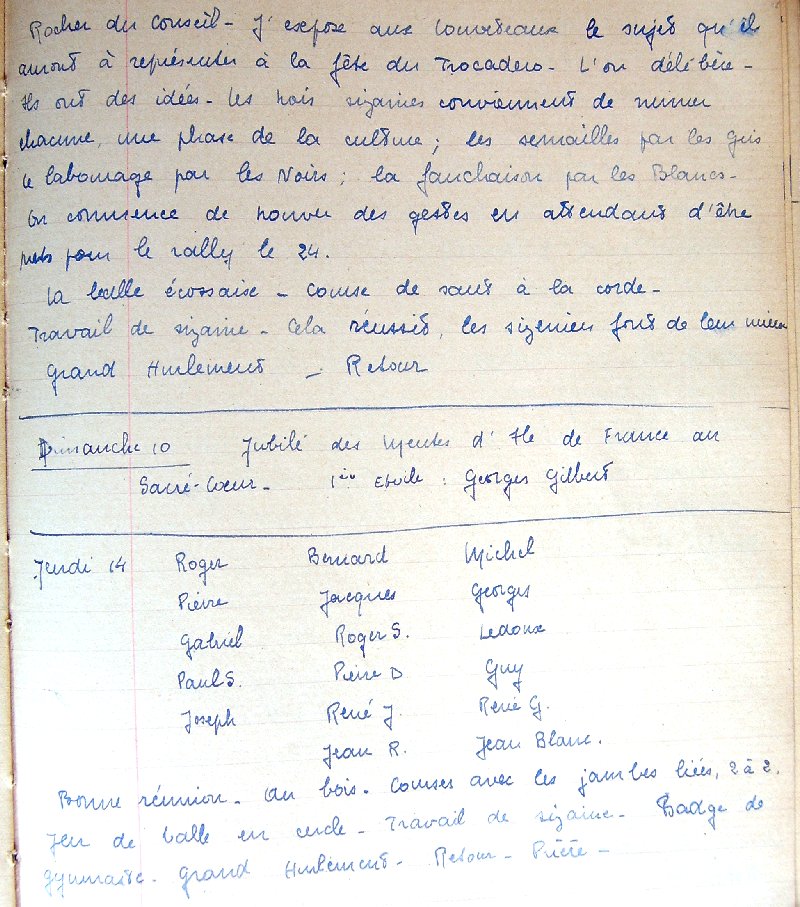 Rocher du Conseil - J'expose aux louveteaux le sujet qu'ils
auront à représenter à la fête du Trocadero - L'on délibère -
Ils ont des idées - les trois sizaines conviennent de mimer
chacune, une phase de la culture ; les semailles par les gris
le labourage par les Noirs ; la fauchaison par les Blancs -
On commence de trouver des gestes en attendant d'être
prêts pour le rally le 24.
La balle écossaise - Course de saut à la corde -
Travail de sizaine - Cela réussit, les sizeniers font de leur mieux
Grand Hurlement - Retour
Dimanche 10 Jubilé des Meutes d'Ile de France au
Sacré-Coeur - 1ère Etoile : Georges Gilbert
Jeudi 14 Roger Bernard Michel
Pierre Jacques Georges
Gabriel Roger S. Ledoux
Paul S. Pierre D Guy
Joseph René J. René G.
Jean R. Jean Blanc.
Bonne réunion - Au bois - Courses avec les jambes liées, 2 à 2.
Jeu de balle en cercle - Travail de sizaine - Badge de
gymnaste - Grand Hurlement - Retour - Prière -